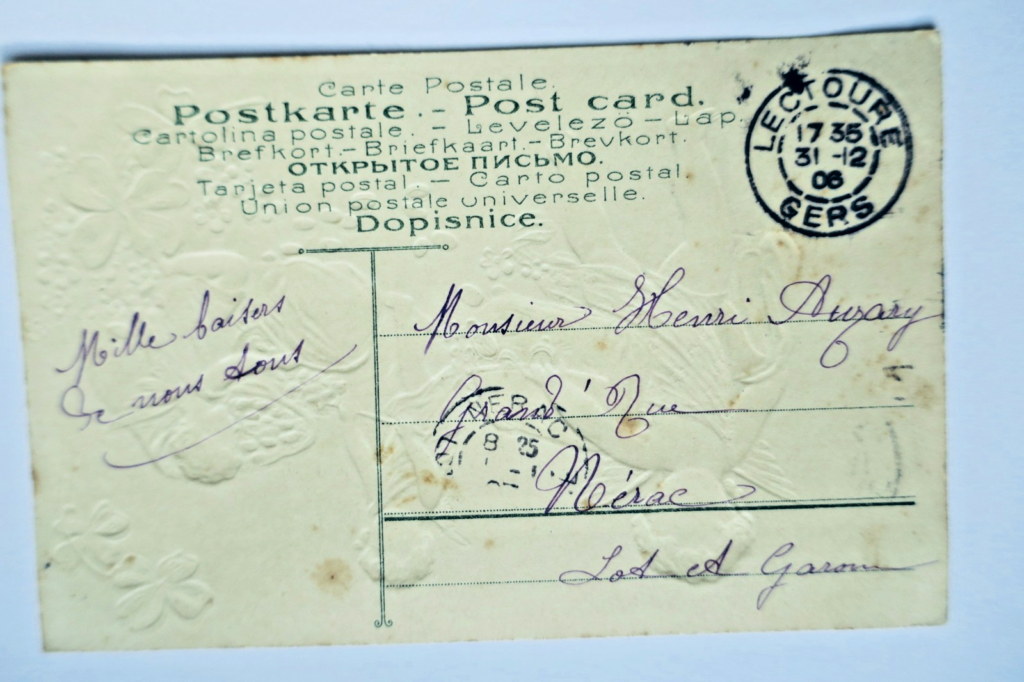 Carte Postale.
Postkarte. - Post card.
Cartolina postale. - Levelezö - Lap.
Brefkort.- Briefkaart.- Brevkort.
ОТКРЫТОЕ ПИСЬМО.
Tarjeta postal. - Carto postal
Union postale universelle.
Dopisnice.
LECTOURE
17 35
31 -12
06
GERS
Mille baisers
de nous tous
Monsieur Henri Auzary
Grand' Rue
NERAC
8 25
Nérac
Lot et Garonne